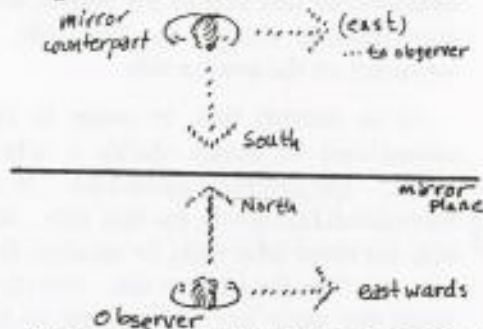 mirror
counterpart
(east)
... to observer
South
mirror
plane
North
eastwards
Observer